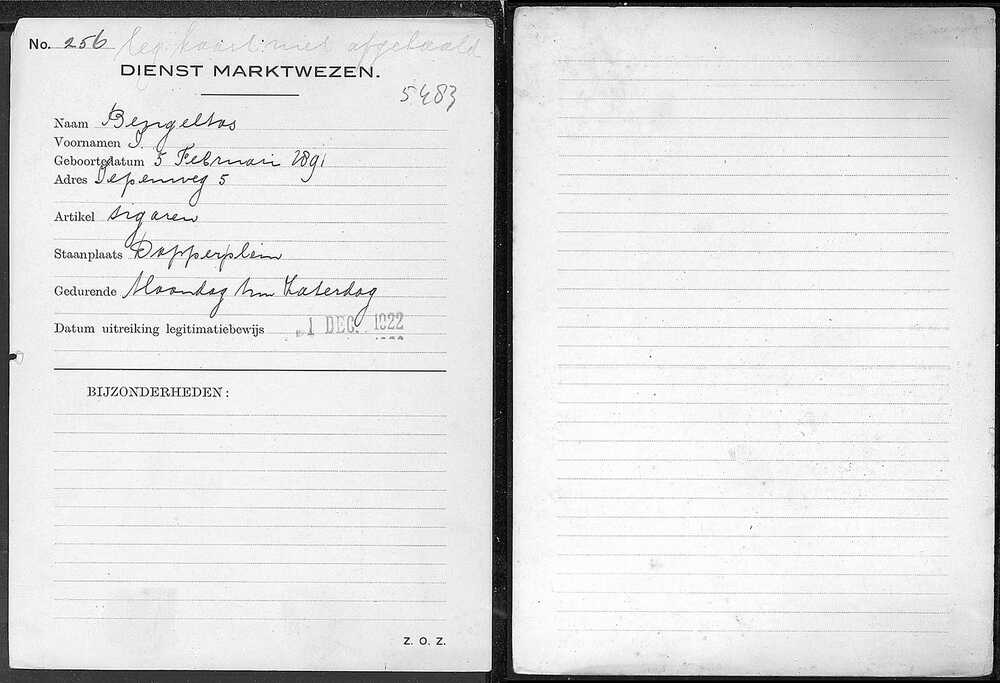 No. 256 leg. kaart niet afgehaald
DIENST MARKTWEZEN.
5483
Naam Bengeltas
Voornamen I.
Geboortedatum 5 Februari 1891
Adres Iepenweg 5
Artikel sigaren
Staanplaats Dapperplein
Gedurende Maandag t/m Zaterdag
Datum uitreiking legitimatiebewijs 1 DEC. 1922
BIJZONDERHEDEN:
Z. O. Z.